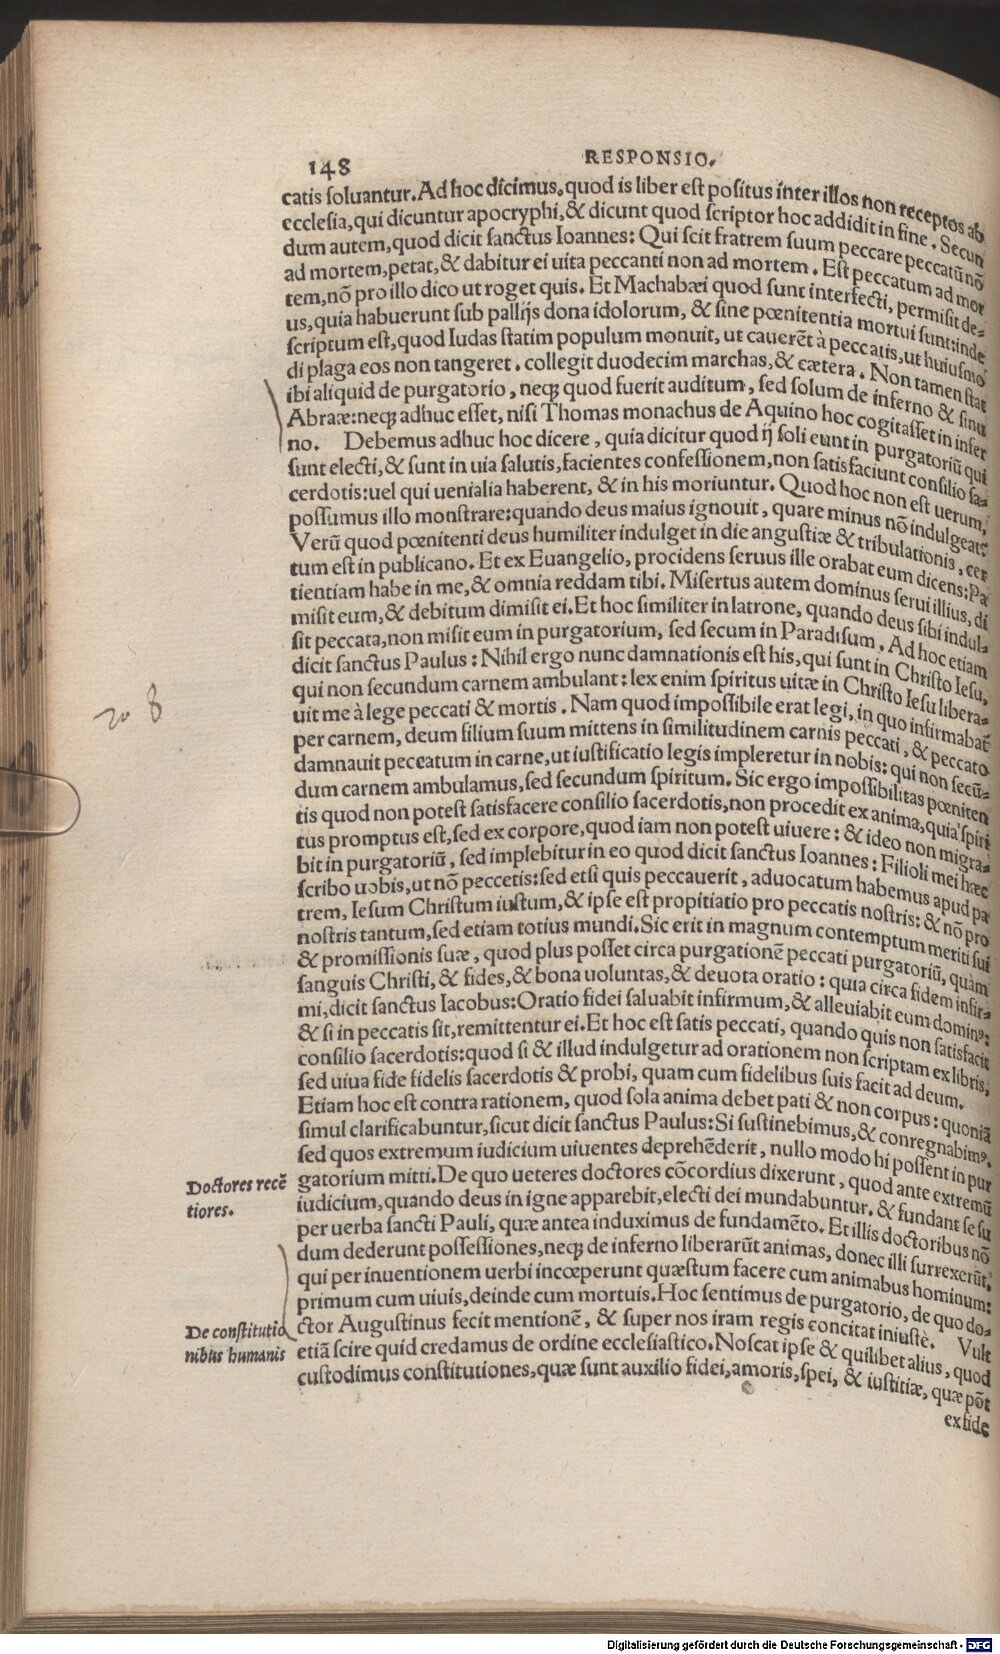 148 RESPONSIO.
catis soluantur. Ad hoc dicimus, quod is liber est positus inter illos non receptos ab
ecclesia, qui dicuntur apocryphi, & dicunt quod scriptor hoc addidit in fine. Secun
dum autem, quod dicit sanctus Ioannes: Qui scit fratrem suum peccare peccatū nō
ad mortem, petat, & dabitur ei uita peccanti non ad mortem. Est peccatum ad mor
tem, nō pro illo dico ut roget quis. Et Machabæi quod sunt interfecti, permisit de-
us, quia habuerunt sub pallijs dona idolorum, & sine pœnitentia mortui sunt: inde
scriptum est, quod Iudas statim populum monuit, ut cauerēt à peccatis, ut huiusmo
di plaga eos non tangeret. collegit duodecim marchas, & cætera. Non tamen stat
ibi aliquid de purgatorio, neqꝫ quod fuerit auditum, sed solum de inferno & sinu
Abraæ: neqꝫ adhuc esset, nisi Thomas monachus de Aquino hoc cogitasset in infer
no. Debemus adhuc hoc dicere, quia dicitur quod ij soli eunt in purgatoriū qui
sunt electi, & sunt in uia salutis, facientes confessionem, non satisfaciunt consilio sa-
cerdotis: uel qui uenialia haberent, & in his moriuntur. Quod hoc non est uerum,
possumus illo monstrare: quando deus maius ignouit, quare minus nō indulgeat:
Verū quod pœnitenti deus humiliter indulget in die angustiæ & tribulationis, cer
tum est in publicano. Et ex Euangelio, procidens seruus ille orabat eum dicens: Pa
tientiam habe in me, & omnia reddam tibi. Misertus autem dominus serui illius, di
misit eum, & debitum dimisit ei. Et hoc similiter in latrone, quando deus sibi indul-
sit peccata, non misit eum in purgatorium, sed secum in Paradisum. Ad hoc etiam
dicit sanctus Paulus: Nihil ergo nunc damnationis est his, qui sunt in Christo Iesu,
qui non secundum carnem ambulant: lex enim spiritus uitæ in Christo Iesu libera-
uit me à lege peccati & mortis. Nam quod impossibile erat legi, in quo infirmabat
per carnem, deum filium suum mittens in similitudinem carnis peccati, & peccato
damnauit peccatum in carne, ut iustificatio legis impleretur in nobis: qui non secū-
dum carnem ambulamus, sed secundum spiritum. Sic ergo impossibilitas pœniten
tis quod non potest satisfacere consilio sacerdotis, non procedit ex anima, quia spiri
tus promptus est, sed ex corpore, quod iam non potest uiuere: & ideo non migra-
bit in purgatoriū, sed implebitur in eo quod dicit sanctus Ioannes: Filioli mei hæc
scribo uobis, ut nō peccetis: sed etsi quis peccauerit, aduocatum habemus apud pa
trem, Iesum Christum iustum, & ipse est propitiatio pro peccatis nostris: & nō pro
nostris tantum, sed etiam totius mundi. Sic erit in magnum contemptum meriti sui
& promissionis suæ, quod plus posset circa purgationē peccati purgatoriū, quàm
sanguis Christi, & fides, & bona uoluntas, & deuota oratio: quia circa fidem infir-
mi, dicit sanctus Iacobus: Oratio fidei saluabit infirmum, & alleuiabit eum dominꝰ:
& si in peccatis sit, remittentur ei. Et hoc est satis peccati, quando quis non satisfacit
consilio sacerdotis: quod si & illud indulgetur ad orationem non scriptam ex libris,
sed uiua fide fidelis sacerdotis & probi, quam cum fidelibus suis facit ad deum.
Etiam hoc est contra rationem, quod sola anima debet pati & non corpus: quoniā
simul clarificabuntur, sicut dicit sanctus Paulus: Si sustinebimus, & conregnabimꝰ.
sed quos extremum iudicium uiuentes deprehēderit, nullo modo hi possent in pur
Doctores recē
tiores.
gatorium mitti. De quo ueteres doctores cōcordius dixerunt, quod ante extremū
iudicium, quando deus in igne apparebit, electi dei mundabuntur. & fundant se su
per uerba sancti Pauli, quæ antea induximus de fundamēto. Et illis doctoribus nō
dum dederunt possessiones, neqꝫ de inferno liberarūt animas, donec illi surrexerūt,
qui per inuentionem uerbi incœperunt quæstum facere cum animabus hominum:
primum cum uiuis, deinde cum mortuis. Hoc sentimus de purgatorio, de quo do-
De constitutio
nibus humanis
ctor Augustinus fecit mentionē, & super nos iram regis concitat iniustè. Vult
etiā scire quid credamus de ordine ecclesiastico. Noscat ipse & quilibet alius, quod
custodimus constitutiones, quæ sunt auxilio fidei, amoris, spei, & iustitiæ, quæ pōt
ex fide
20 8
Digitalisierung gefördert durch die Deutsche Forschungsgemeinschaft - DFG